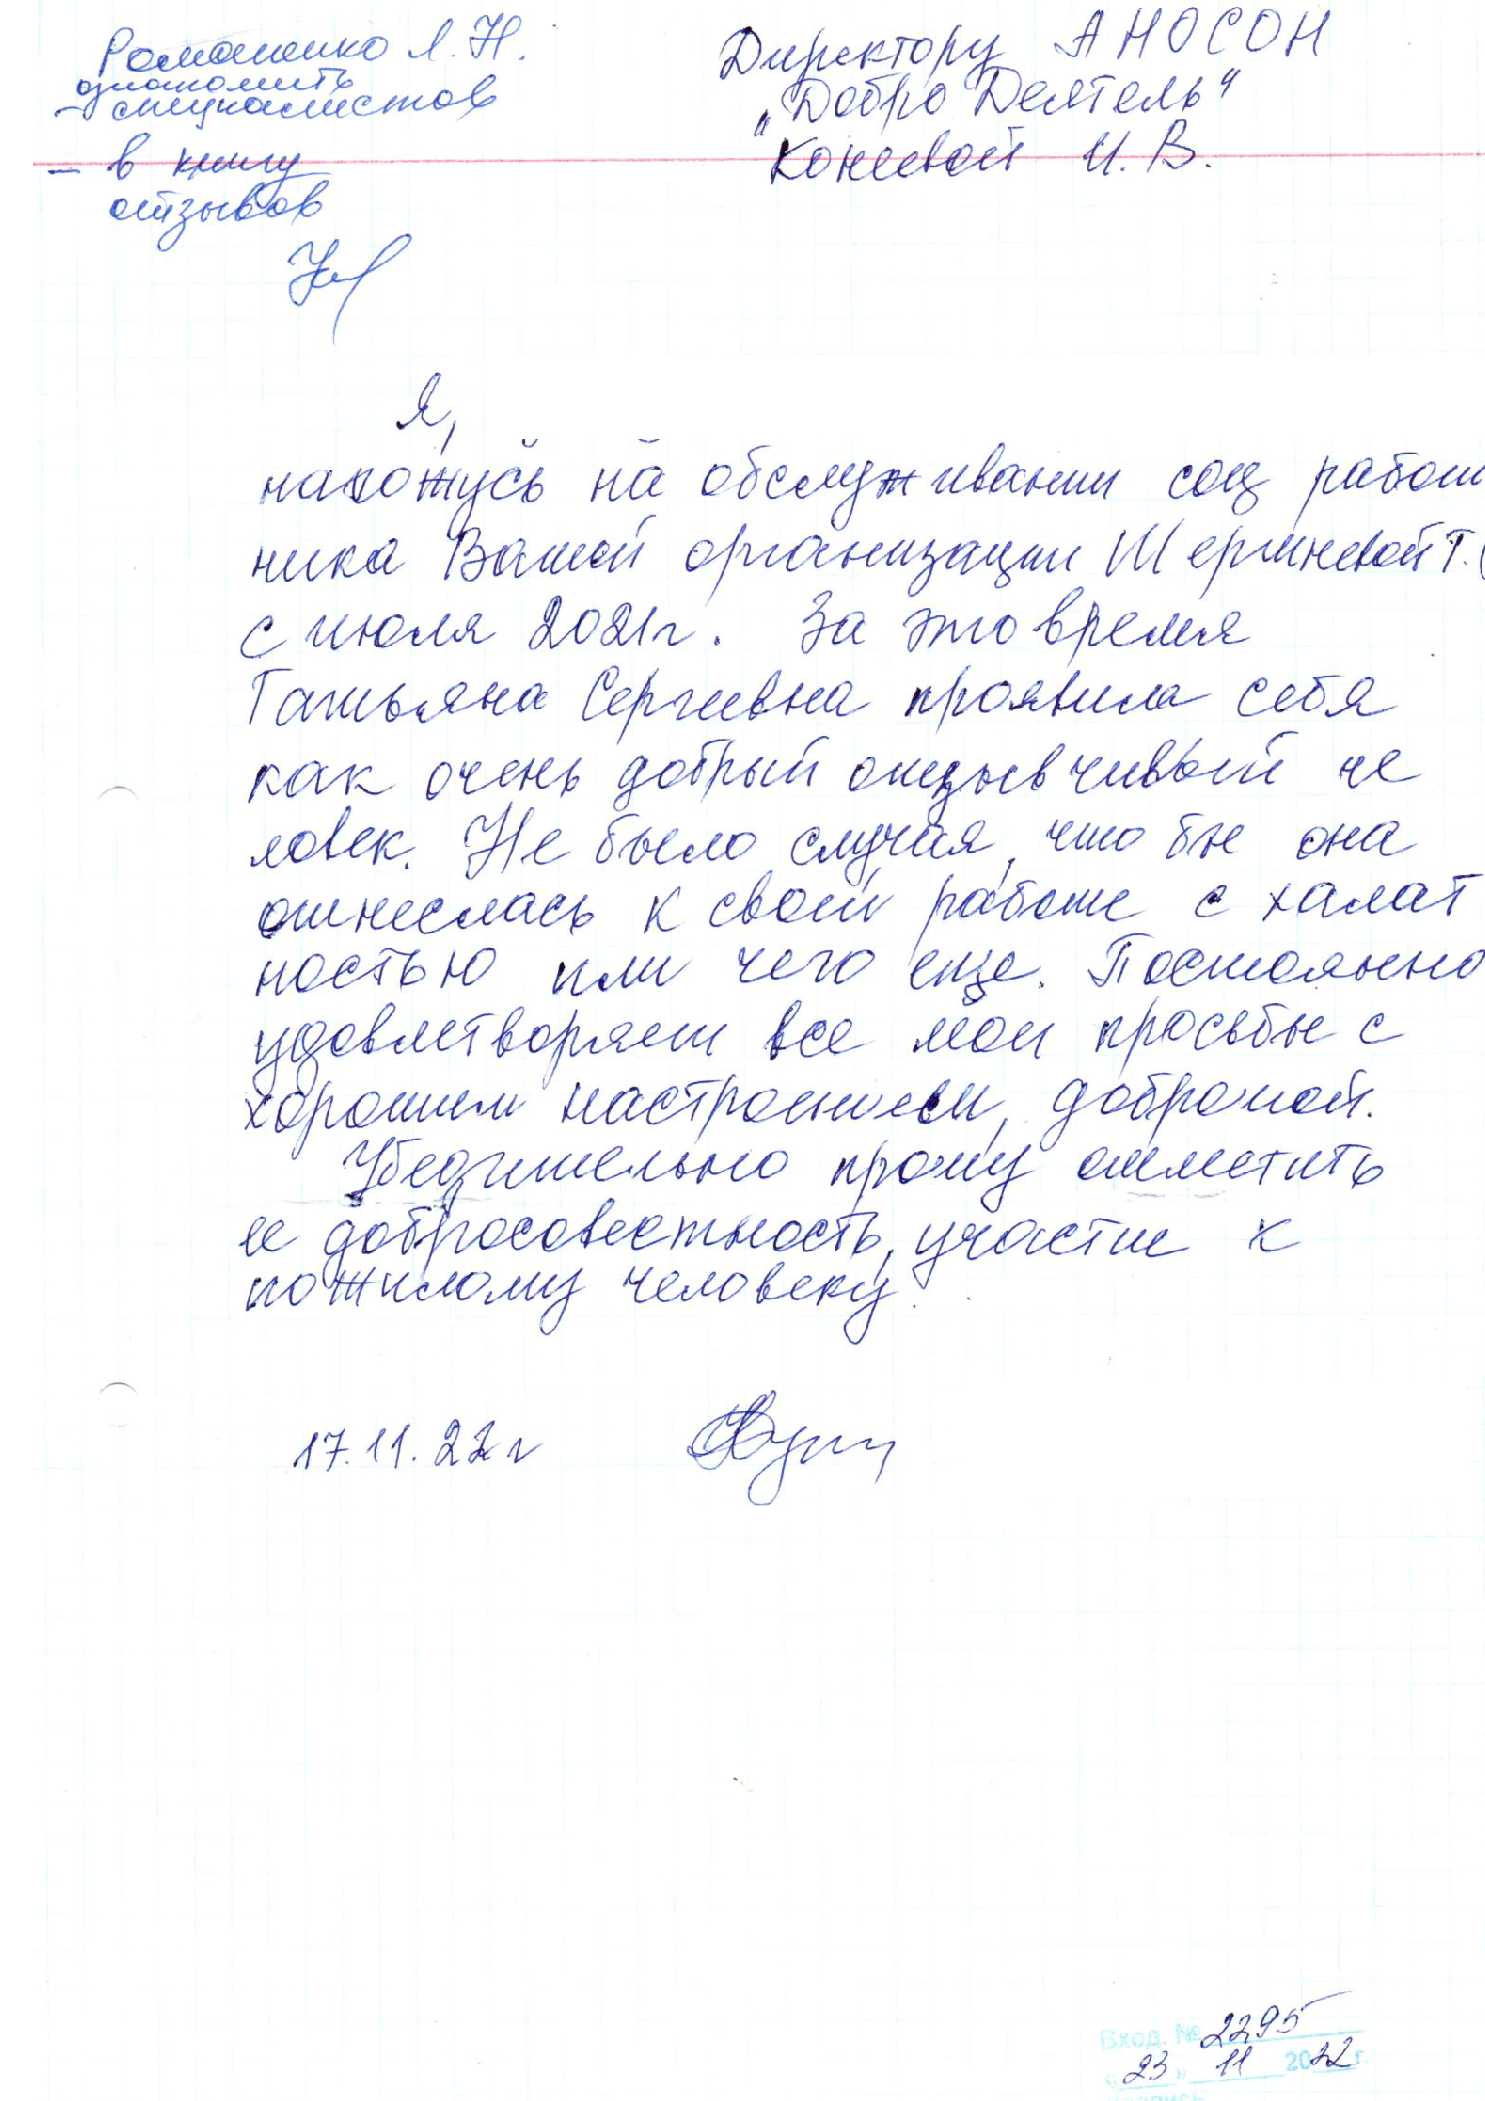 Романенко Л. Н.
ознакомить
- специалистов
- в книгу
отзывов
Директору АНОСОН
„Добро Деятель"
Коневой И. В.
Я,
нахожусь на обслуживании соц работ
ника Вашей организации Шергиневой Т.
с июля 2021г. За это время
Татьяна Сергеевна проявила себя
как очень добрый отзывчивый че
ловек. Не было случая, что бы она
отнеслась к своей работе с халат
ностью или чего еще. Постоянно
удовлетворяет все мои просьбы с
хорошим настроением, добротой.
Убедительно прошу отметить
ее добросовестность, участие к
пожилому человеку.
17.11.22г
Вход. № 2295
« 23 » 11 2022г.